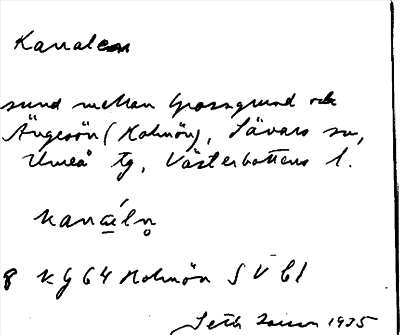 Kanalen
sund mellan Grossgrund och
Ängesön (Holmön), Sävars sn,
Umeå tg, Västerbottens l.
kanaln
KG 64 Holmön SV bl
Seth 1935